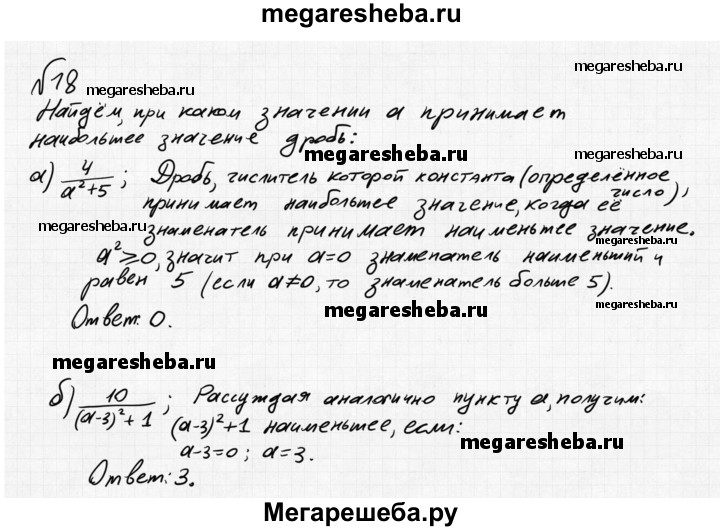 megaresheba.ru
№18 megaresheba.ru megaresheba.ru
Найдём, при каком значении a принимает
наибольшее значение дробь:
megaresheba.ru megaresheba.ru
а) 4/(a²+5); Дробь, числитель которой константа (определённое
число),
принимает наибольшее значение, когда её
megaresheba.ru знаменатель принимает наименьшее значение.
megaresheba.ru
a²≥0, значит при a=0 знаменатель наименьший и
равен 5 (если a≠0, то знаменатель больше 5).
megaresheba.ru
Ответ: 0. megaresheba.ru
megaresheba.ru
б) 10/((a-3)²+1); Рассуждая аналогично пункту а, получим:
(a-3)²+1 наименьшее, если:
megaresheba.ru
a-3=0; a=3.
Ответ: 3.
megaresheba.ru
Мегарешеба.ру